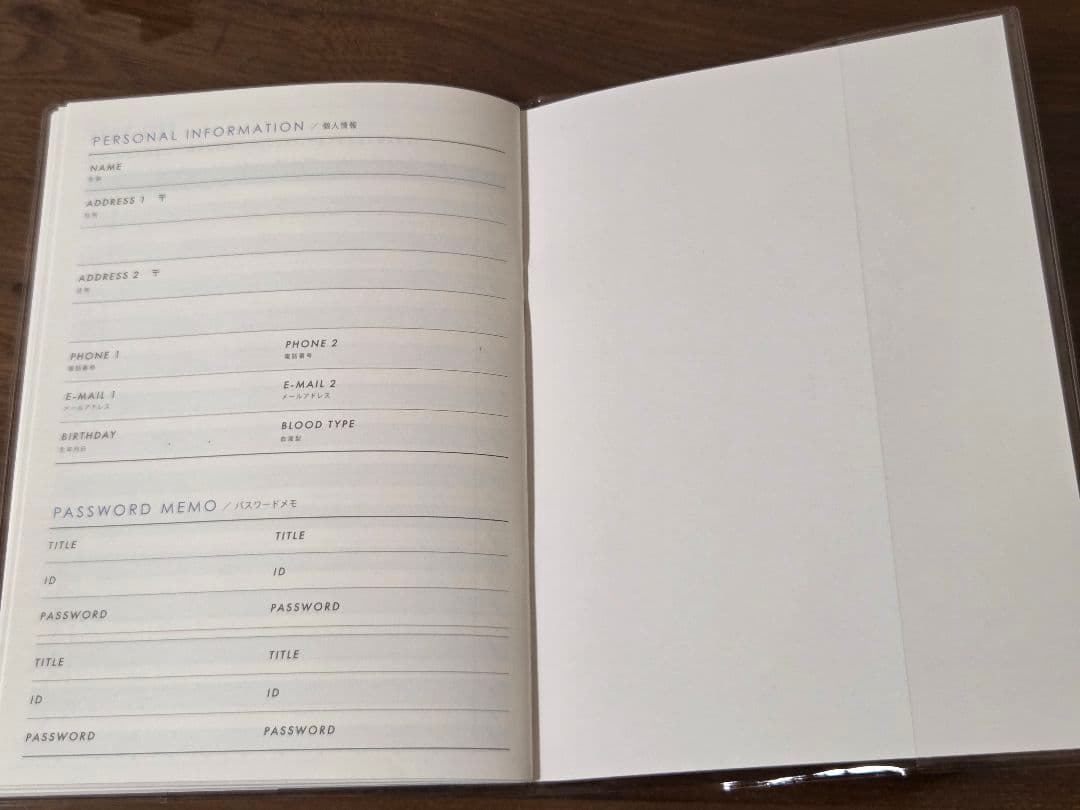 PERSONAL INFORMATION / 個人情報
NAME
名前
ADDRESS 1 〒
住所
ADDRESS 2 〒
住所
PHONE 1 PHONE 2
電話番号 電話番号
E-MAIL 1 E-MAIL 2
メールアドレス メールアドレス
BIRTHDAY BLOOD TYPE
生年月日 血液型
PASSWORD MEMO / パスワードメモ
TITLE TITLE
ID ID
PASSWORD PASSWORD
TITLE TITLE
ID ID
PASSWORD PASSWORD